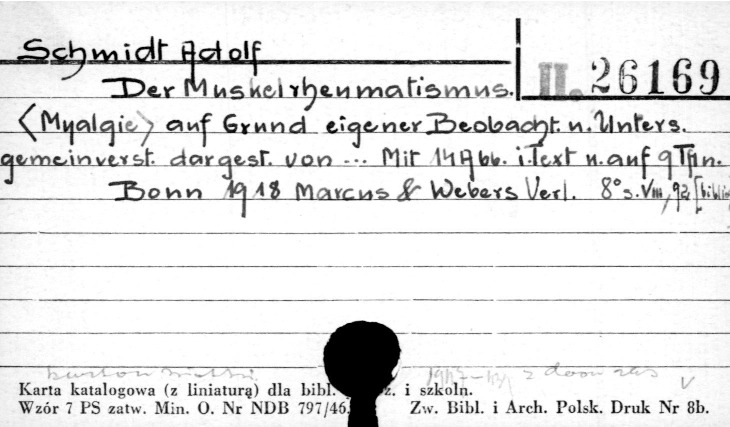 Schmidt Adolf
II. 26169
Der Muskelrheumatismus.
<Myalgie> auf Grund eigener Beobacht. u. Unters.
gemeinverst. dargest. von ... Mit 14 Abb. i. Text u. auf 9 Tfln.
Bonn 1918 Marcus & Webers Verl. 8° s. VIII, 92 [biblio
z
v
Karta katalogowa (z liniaturą) dla bibl. i szkoln.
Wzór 7 PS zatw. Min. O. Nr NDB 797/46. Zw. Bibl. i Arch. Polsk. Druk Nr 8b.